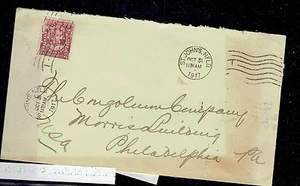 ST. JOHN'S, NF'LD.
OCT 31
1917
The Congoleum Company
Morris Building
Philadelphia Pa
Usa